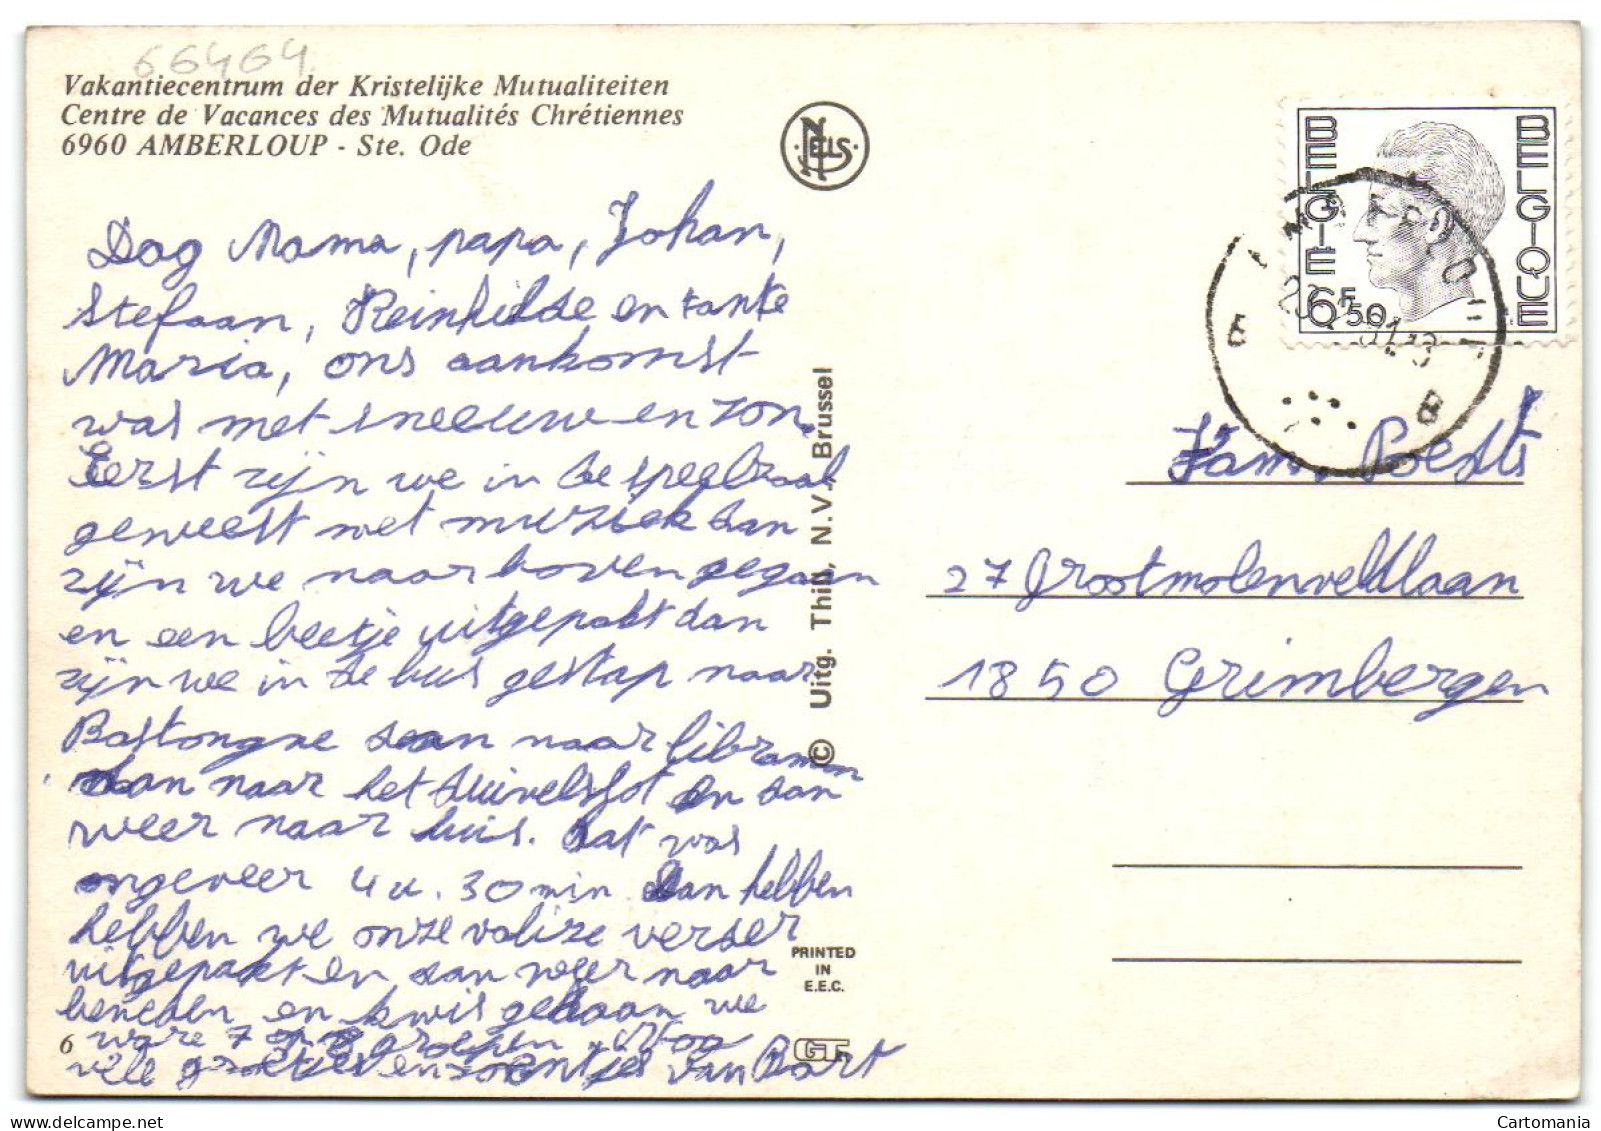 66464
Vakantiecentrum der Kristelijke Mutualiteiten
Centre de Vacances des Mutualités Chrétiennes
6960 AMBERLOUP - Ste. Ode
NELS
BELGIE
BELGIQUE
6F50
Dag Mama, papa, Johan,
Stefaan, Reinhilde en tante
Maria, ons aankomst
was met sneeuw en zon.
Eerst zijn we in de speelzaal
geweest met muziek dan
zijn we naar boven gegaan
en een beetje uitgepakt dan
zijn we in de bus gestap naar
Bastongne dan naar libramon
dan naar het duivelsgot en dan
weer naar huis. Dat was
ongeveer 4 u. 30 min. dan hebben
hebben we onze valize verder
uitgepakt en dan weer naar
beneden en kwis gedaan we
ware 7 groepen. Nog
vele groetjes en zoentjes van Bart
6
© Uitg. Thill, N.V., Brussel
PRINTED
IN
E.E.C.
Fam. 
27 Grootmolenveldlaan
1850 Grimbergen
Cartomania